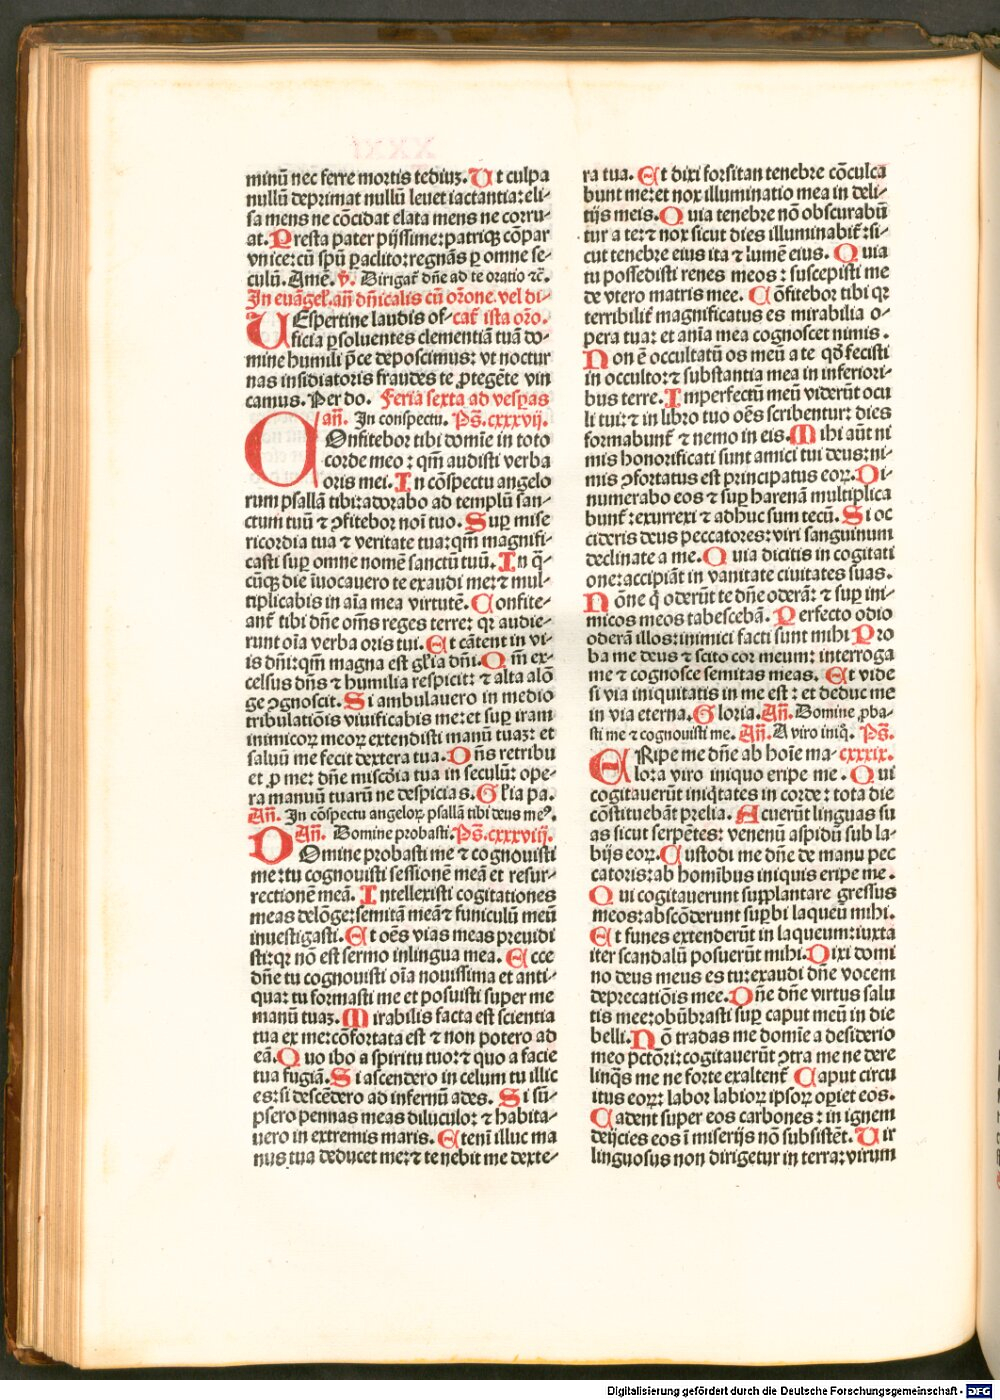 minū nec ferre mortis tediuʒ. Ut culpa
nullū deprimat nullū leuet iactantia: eli-
sa mens ne cōcidat elata mens ne corru-
at. Presta pater pijssime: patriqꝫ cōpar
vnice: cū spū ꝑaclito: regnās ꝑ omne se-
culū. Amē. ꝟ. Dirigat̄ dn̄e ad te oratio ⁊c̄.
In euāgel'. an̄ dn̄icalis cū or̄one. vel di-
cat̄ ista or̄o.
UEspertine laudis of-
ficia ꝑsoluentes clementiā tuā do-
mine humili p̄ce deposcimus: vt noctur
nas insidiatoris fraudes te ꝓtegēte vin
camus. Per do. Feria sexta ad vesꝑas
an̄. In conspectu. Ps̄. cxxxvij.
COnfitebor tibi domie in toto
corde meo: qm̄ audisti verba
oris mei. In cōspectu angelo
rum psallā tibi: adorabo ad templū san-
ctum tuū ⁊ ꝯfitebor noī tuo. Suꝑ mise
ricordia tua ⁊ veritate tua: qm̄ magnifi-
casti suꝑ omne nomē sanctū tuū. In q̄-
cūqꝫ die īuocauero te exaudi me: ⁊ mul-
tiplicabis in aīa mea virtutē. Confite-
ant̄ tibi dn̄e om̄s reges terre: qꝛ audie-
runt oīa verba oris tui. Et cātent in vi-
is dn̄i: qm̄ magna est gl'ia dn̄i. Qm̄ ex-
celsus dn̄s ⁊ humilia respicit: ⁊ alta alō
ge ꝯgnoscit. Si ambulauero in medio
tribulatiōis viuificabis me: et suꝑ iram
inimicoꝝ meoꝝ extendisti manū tuaʒ: et
saluū me fecit dextera tua. Dn̄s retribu
et ꝓ me: dn̄e misc̄dia tua in seculū: ope-
ra manuū tuarū ne despicias. Gl'ia pa.
An̄. In cōspectu angeloꝝ psallā tibi deus meꝰ.
An̄. Domine probasti. Ps̄. cxxxviij.
DOmine probasti me ⁊ cognouisti
me: tu cognouisti sessionē meā et resur-
rectionē meā. Intellexisti cogitationes
meas delōge: semitā meā ⁊ funiculū meū
inuestigasti. Et oēs vias meas preuidi
sti: qꝛ nō est sermo inlingua mea. Ecce
dn̄e tu cognouisti oīa nouissima et anti-
qua: tu formasti me et posuisti super me
manū tuaʒ. Mirabilis facta est scientia
tua ex me: cōfortata est ⁊ non potero ad
eā. Quo ibo a spiritu tuo: ⁊ quo a facie
tua fugiā. Si ascendero in celum tu illic
es: si descēdero ad infernū ades. Si sū-
psero pennas meas diluculo: ⁊ habita-
uero in extremis maris. Etenī illuc ma
nus tua deducet me: ⁊ te nebit me dexte-
ra tua. Et dixi forsitan tenebre cōculca
bunt me: et nox illuminatio mea in deli-
tijs meis. Quia tenebre nō obscurabū
tur a te: ⁊ nox sicut dies illuminabit̄: si-
cut tenebre eius ita ⁊ lumē eius. Quia
tu possedisti renes meos: suscepisti me
de vtero matris mee. Cōfitebor tibi qꝛ
terribilit̄ magnificatus es mirabilia o-
pera tua: et anīa mea cognoscet nimis.
Non ē occultatū os meū a te qd̄ fecisti
in occulto: ⁊ substantia mea in inferiori-
bus terre. Imperfectū meū viderūt ocu
li tui: ⁊ in libro tuo oēs scribentur: dies
formabunt̄ ⁊ nemo in eis. Mihi aūt ni
mis honorificati sunt amici tui deus: ni-
mis ꝯfortatus est principatus eoꝝ. Di
numerabo eos ⁊ suꝑ harenā multiplica
bunt̄: exurrexi ⁊ adhuc sum tecū. Si oc
cideris deus peccatores: viri sanguinum
declinate a me. Quia dicitis in cogitati
one: accipiāt in vanitate ciuitates suas.
Nōne q̄ oderūt te dn̄e oderā: ⁊ suꝑ ini-
micos meos tabescebā. Perfecto odio
oderā illos: inimici facti sunt mihi. Pro
ba me deus ⁊ scito cor meum: interroga
me ⁊ cognosce semitas meas. Et vide
si via iniquitatis in me est: et deduc me
in via eterna. Gloria. An̄. Domine ꝓba-
sti me ⁊ cognouisti me. An̄. A viro iniq̄. Ps̄.
cxxxix.
ERipe me dn̄e ab hoīe ma-
lo: a viro iniquo eripe me. Qui
cogitauerūt iniq̄tates in corde: tota die
cōstituebāt prelia. Acuerūt linguas su
as sicut serpētes: venenū aspidū sub la-
bijs eoꝝ. Custodi me dn̄e de manu pec
catoris: ab homībus iniquis eripe me.
Qui cogitauerunt supplantare gressus
meos: abscōderunt suꝑbi laqueū mihi.
Et funes extenderūt in laqueum: iuxta
iter scandalū posuerūt mihi. Dixi domi
no deus meus es tu: exaudi dn̄e vocem
deprecatiōis mee. Dn̄e dn̄e virtus salu
tis mee: obūbrasti suꝑ caput meū in die
belli. Nō tradas me domīe a desiderio
meo pctōri: cogitauerūt ꝯtra me ne dere
linq̄s me ne forte exaltent̄ Caput circu
itus eoꝝ: labor labioꝝ ipsoꝝ oꝑiet eos.
Cadent super eos carbones: in ignem
deijcies eos ī miserijs nō subsistēt. Uir
linguosus non dirigetur in terra: virum
Digitalisierung gefördert durch die Deutsche Forschungsgemeinschaft - DFG